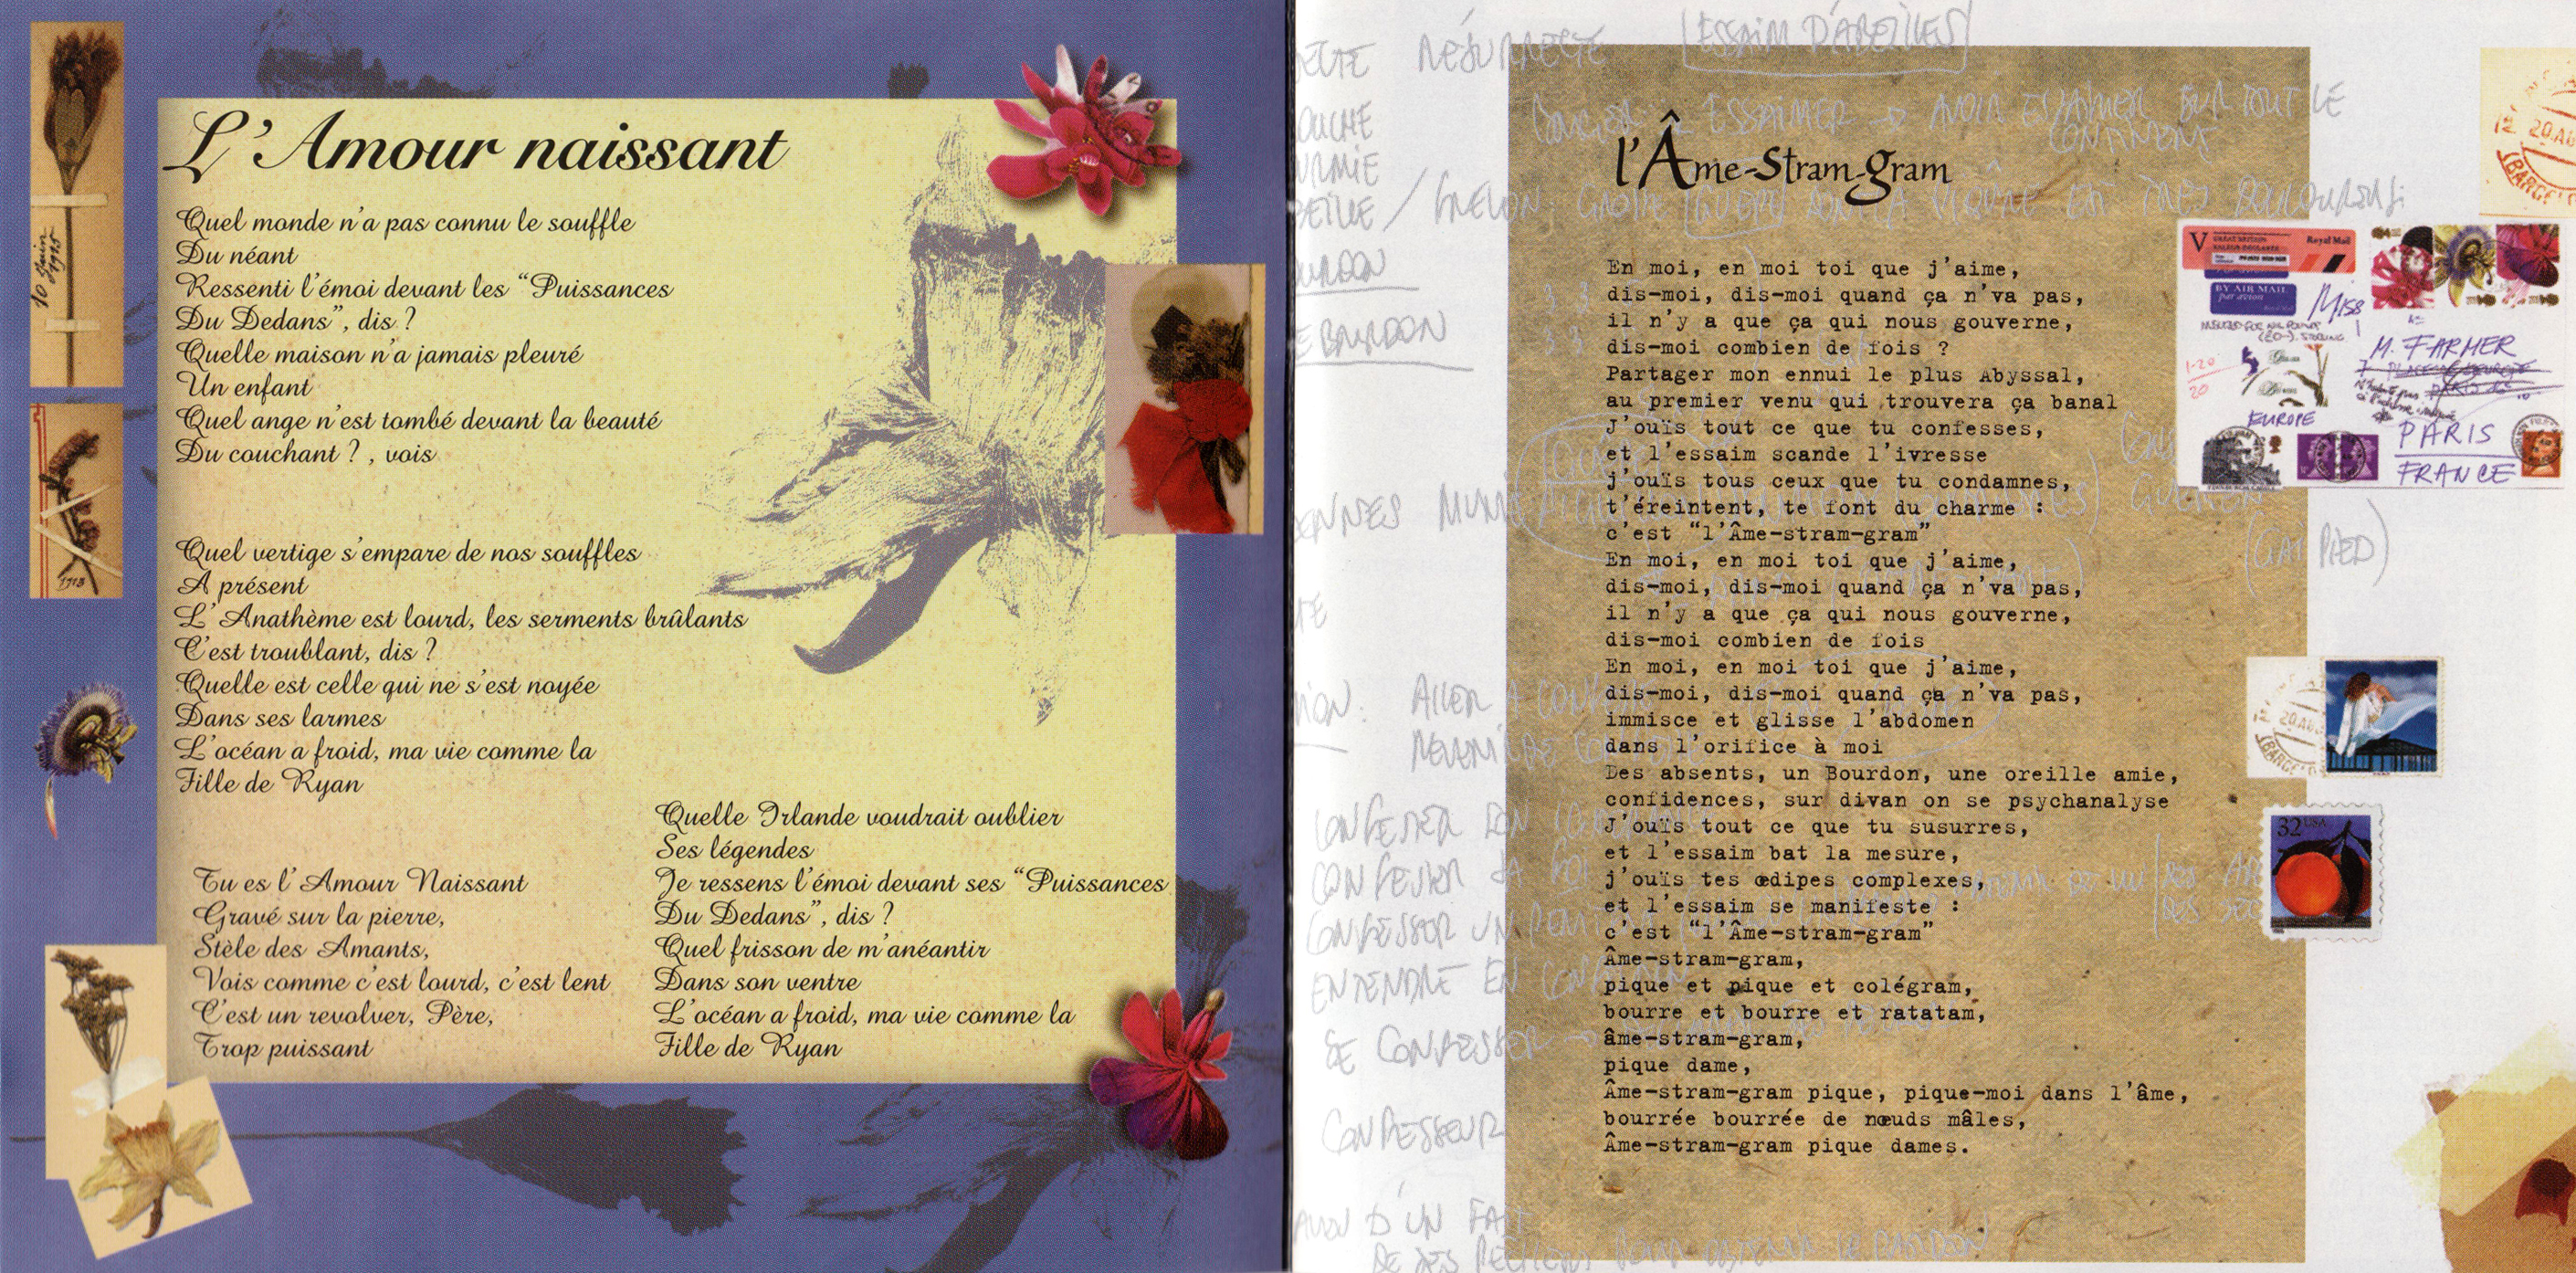 L'Amour naissant
Quel monde n'a pas connu le souffle
Du néant
Ressenti l'émoi devant les “Puissances
Du Dedans”, dis ?
Quelle maison n'a jamais pleuré
Un enfant
Quel ange n'est tombé devant la beauté
Du couchant ? , vois
Quel vertige s'empare de nos souffles
A présent
L'Anathème est lourd, les serments brûlants
C'est troublant, dis ?
Quelle est celle qui ne s'est noyée
Dans ses larmes
L'océan a froid, ma vie comme la
Fille de Ryan
Tu es l'Amour Naissant
Gravé sur la pierre,
Stèle des Amants,
Vois comme c'est lourd, c'est lent
C'est un revolver, Père,
Trop puissant
Quelle Irlande voudrait oublier
Ses légendes
Je ressens l'émoi devant ses “Puissances
Du Dedans”, dis ?
Quel frisson de m'anéantir
Dans son ventre
L'océan a froid, ma vie comme la
Fille de Ryan
10 Juin
1915
1913
l'Âme-Stram-gram
En moi, en moi toi que j'aime,
dis-moi, dis-moi quand ça n'va pas,
il n'y a que ça qui nous gouverne,
dis-moi combien de fois ?
Partager mon ennui le plus Abyssal,
au premier venu qui trouvera ça banal
J'ouïs tout ce que tu confesses,
et l'essaim scande l'ivresse
j'ouïs tous ceux que tu condamnes,
t'éreintent, te font du charme :
c'est “l'Âme-stram-gram”
En moi, en moi toi que j'aime,
dis-moi, dis-moi quand ça n'va pas,
il n'y a que ça qui nous gouverne,
dis-moi combien de fois
En moi, en moi toi que j'aime,
dis-moi, dis-moi quand ça n'va pas,
immisce et glisse l'abdomen
dans l'orifice à moi
Des absents, un Bourdon, une oreille amie,
confidences, sur divan on se psychanalyse
J'ouïs tout ce que tu susurres,
et l'essaim bat la mesure,
j'ouïs tes œdipes complexes,
et l'essaim se manifeste :
c'est “l'Âme-stram-gram”
Âme-stram-gram,
pique et pique et colégram,
bourre et bourre et ratatam,
âme-stram-gram,
pique dame,
Âme-stram-gram pique, pique-moi dans l'âme,
bourrée bourrée de nœuds mâles,
Âme-stram-gram pique dames.
ESSAIM D'ABEILLES
ESSAIMER → AVOIR ESSAIMER SUR TOUT LE
CONTINENT
BOURDON
CONFESSER
CONFESSER SA
CONFESSER UN
ENTENDRE EN
SE CONFESSER
CONFESSEUR
V
Royal Mail
BY AIR MAIL
par avion
Miss
M. FARMER
EUROPE
PARIS
FRANCE
32 USA